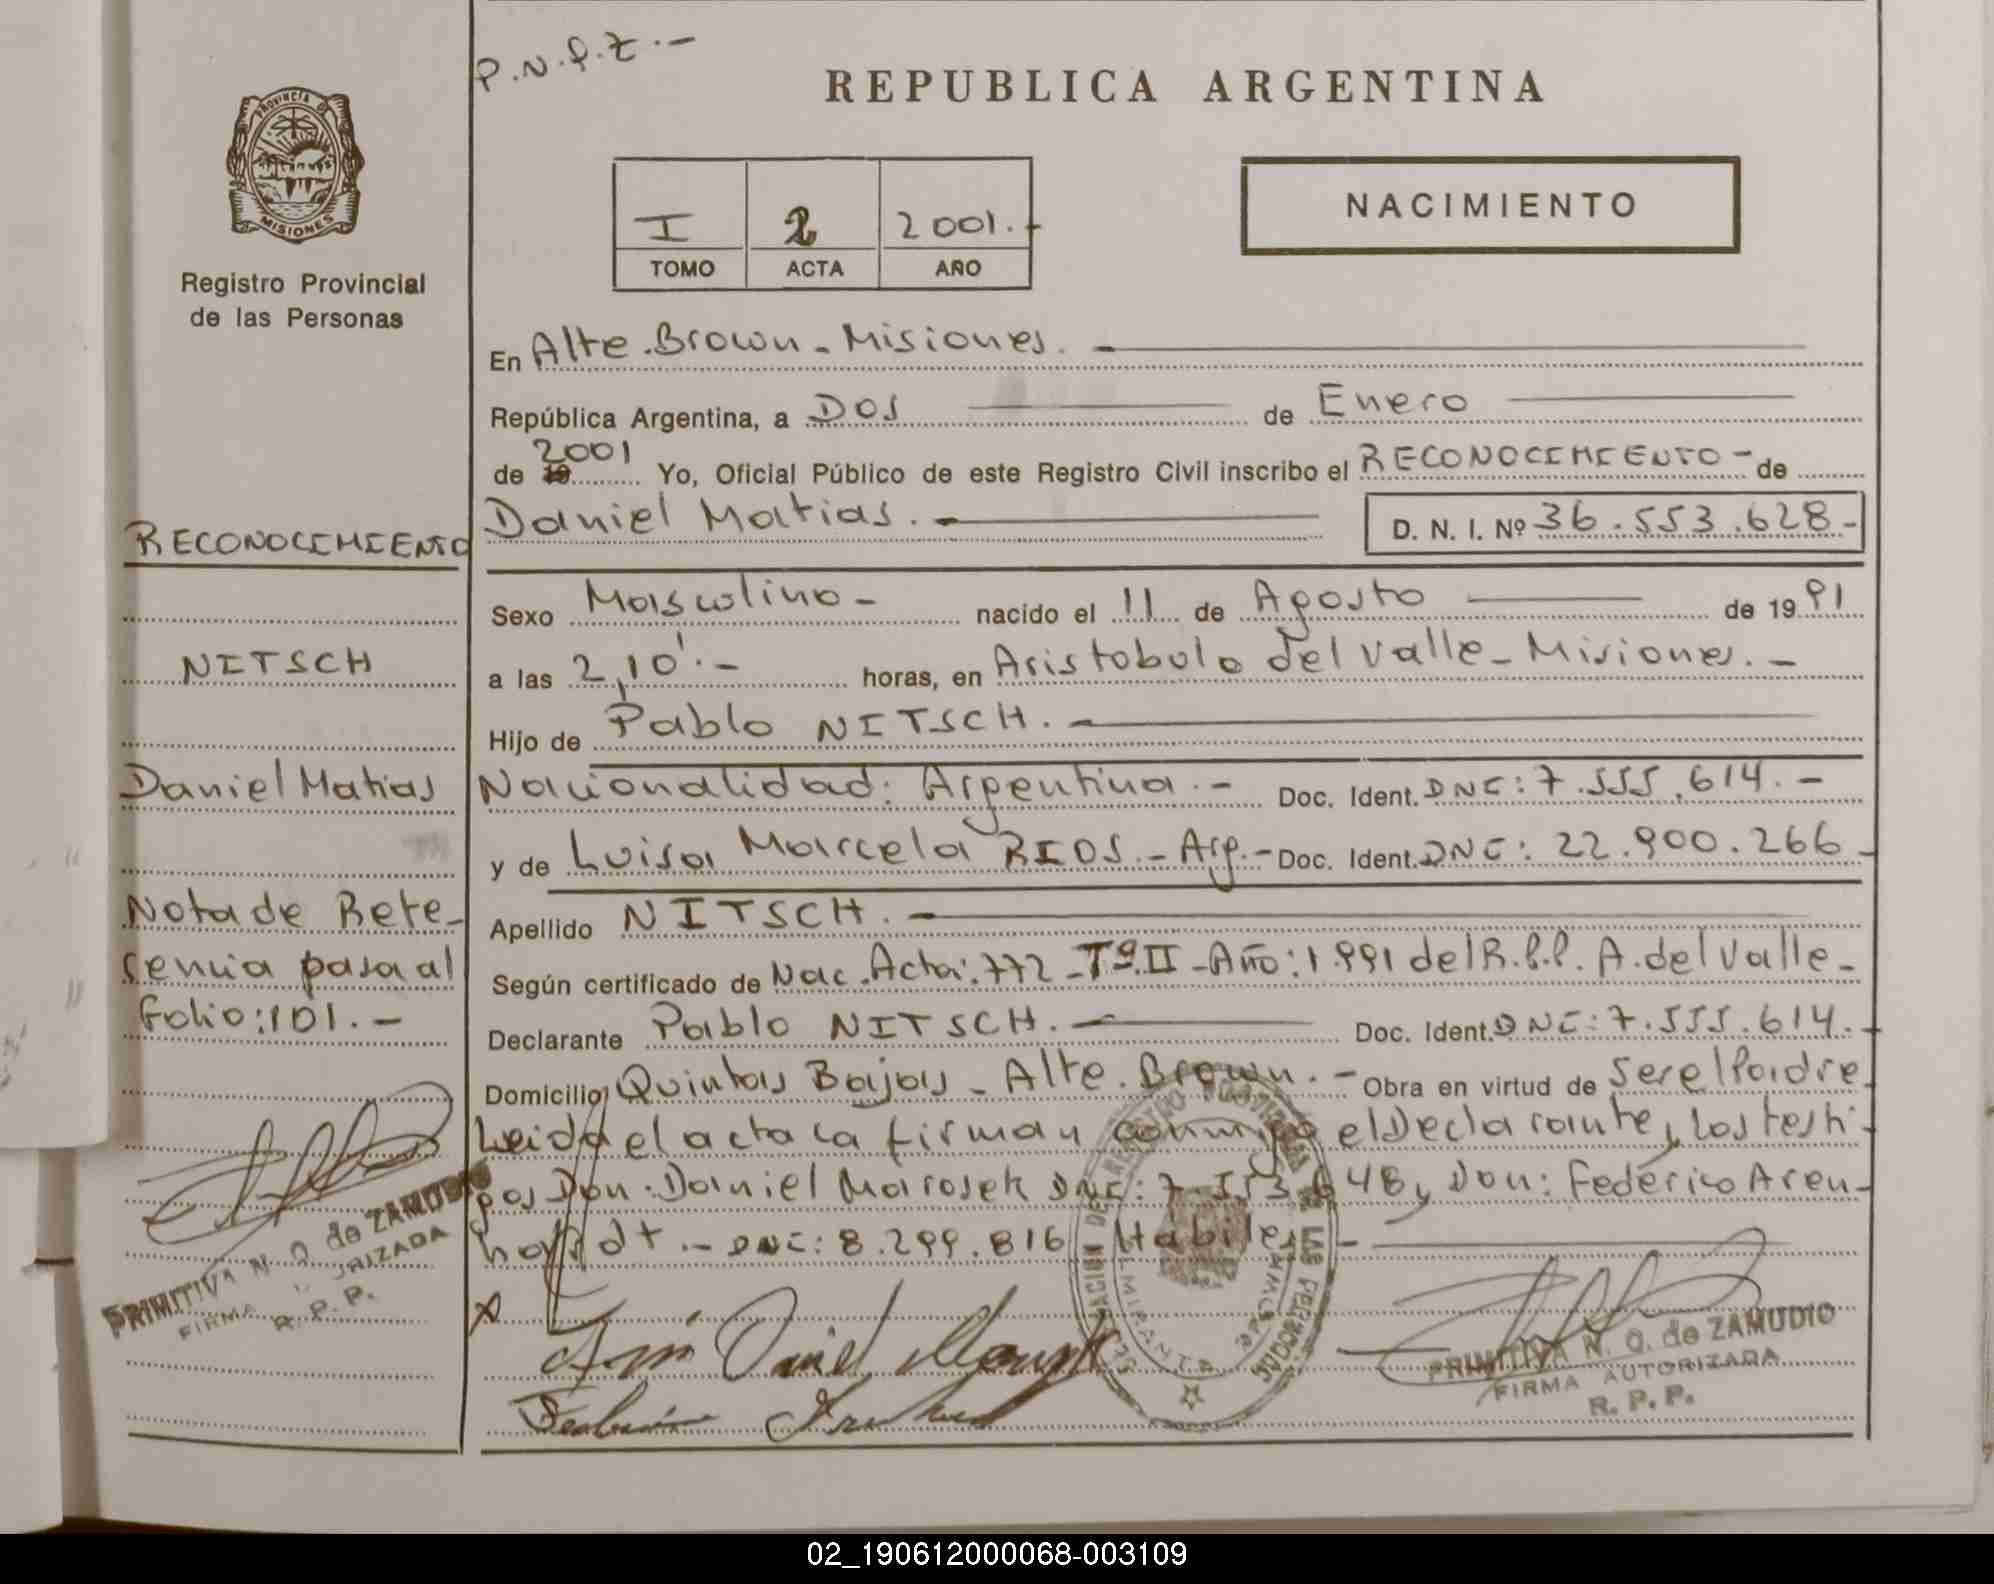 P.N.P.Z.-
REPUBLICA ARGENTINA
PROVINCIA DE
MISIONES
Registro Provincial
de las Personas
I 2 2001.-
TOMO ACTA AÑO
NACIMIENTO
En Alte. Brown - Misiones. -
República Argentina, a Dos de Enero
de 19 2001 Yo, Oficial Público de este Registro Civil inscribo el RECONOCIMIENTO - de
Daniel Matias. - D. N. I. Nº 36.553.628-
Sexo Masculino - nacido el 11 de Agosto de 1991
a las 2,10'.- horas, en Aristobulo del Valle - Misiones. -
Hijo de Pablo NITSCH. -
Nacionalidad: Argentina. - Doc. Ident. DNI: 7.555.614. -
y de Luisa Marcela RIOS. - Arg. - Doc. Ident. DNI: 22.900.266-
Apellido NITSCH. -
Según certificado de Nac. Acta: 772 - Tº II - Año: 1.991 del R.P.P. A. del Valle -
Declarante Pablo NITSCH. - Doc. Ident. DNI: 7.555.614. -
Domicilio Quintas Bajas - Alte. Brown. - Obra en virtud de Ser el Padre
Leida el acta la firman conmigo el Declarante, Los testi-
gos Don: Daniel Marosek DNI: 7.553.648 y Don: Federico Aren-
hardt. - DNI: 8.299.816 Habiles -
RECONOCIMIENTO
NITSCH
Daniel Matias
Nota de Refe-
rencia pasa al
folio: 101. -
PRIMITIVA N. O. de ZAMUDIO
FIRMA AUTORIZADA
R. P. P.
x
PRIMITIVA N. O. de ZAMUDIO
FIRMA AUTORIZADA
R. P. P.
02_190612000068-003109